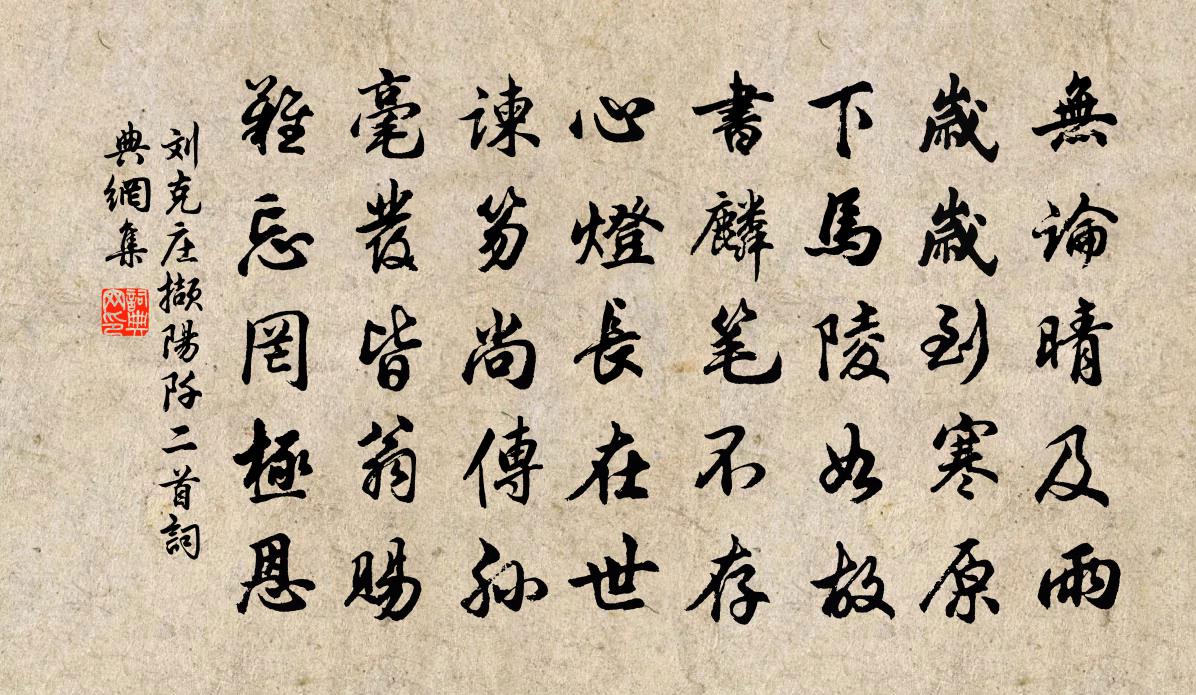 無論晴及雨
歲歲到寒原
下馬陵如故
書麟笔不存
心燈長在世
諫笏尚傳孫
毫發皆翁賜
難忘罔極恩
刘克庄擷陽阡二首詞
典網集